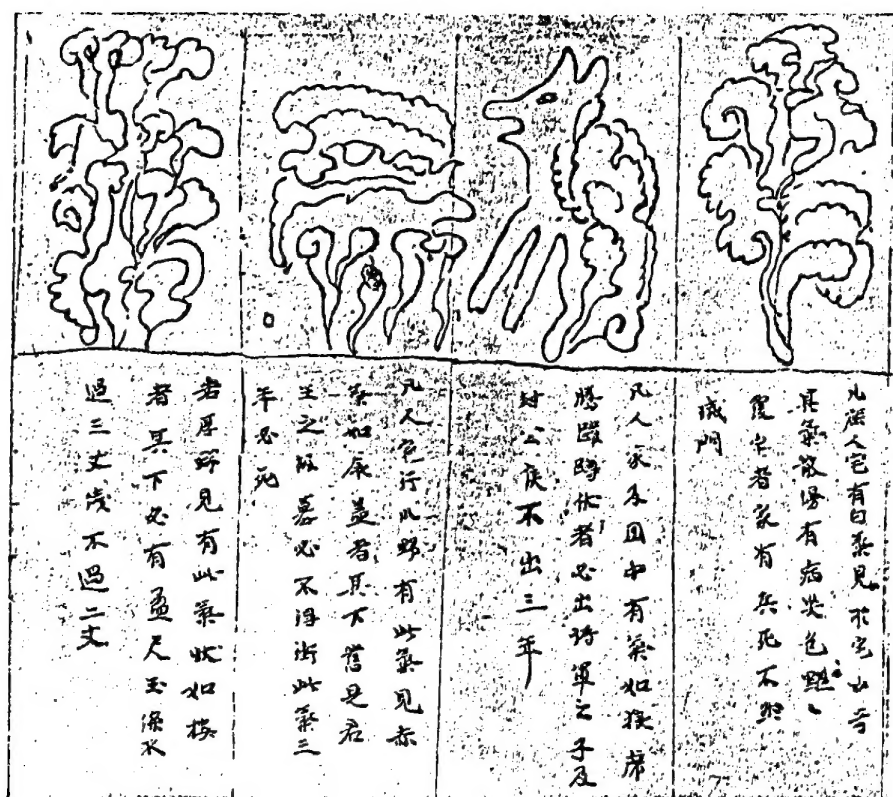 凡庶人宅有白氣見於宅
其氣散漫有病災色黯〻
覆舍者家有兵死不然
滅門
凡人家及園中有氣如狼席
騰躍蹲伏者必出將軍之子及
封公侯不出三年
凡人行此野有此氣見赤
氣如蓋者其下舊是君
王之墓必不得此氣三
年必死
若原野見有此氣狀如樓
者其下必有盈尺玉深不
過三丈淺不過二丈